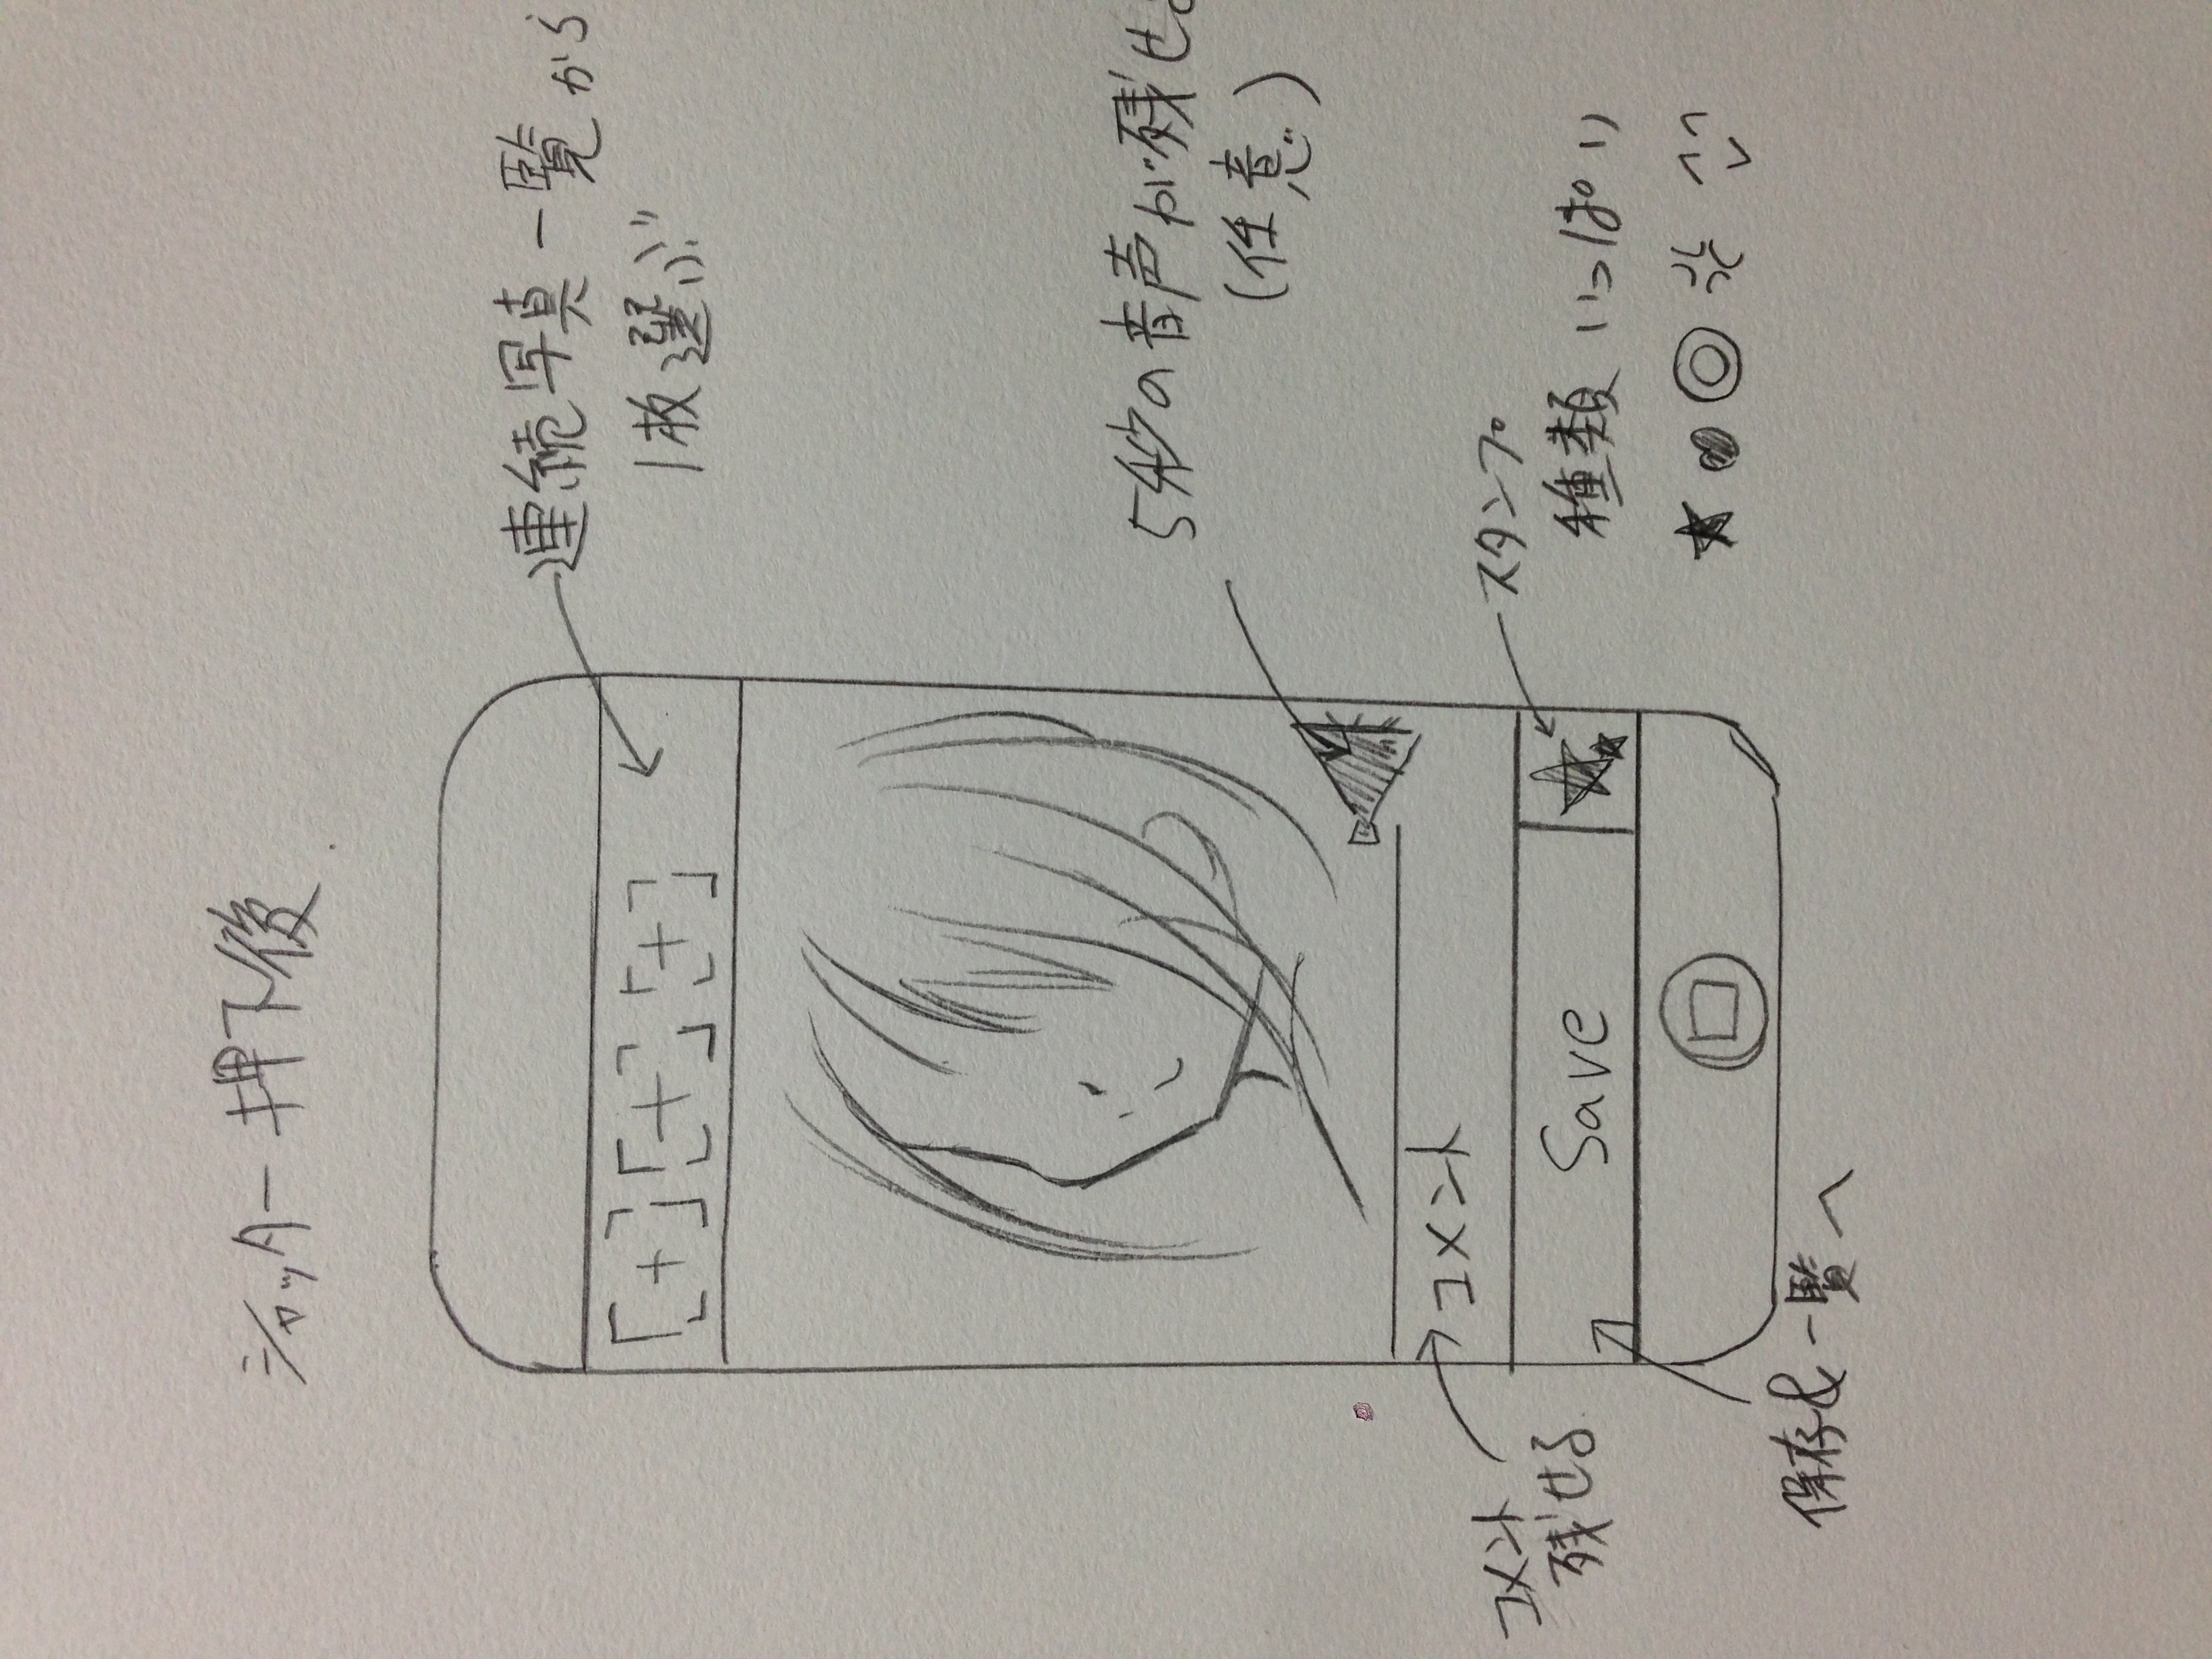 シャッター押下後
連続写真一覧から
1枚選ぶ
5秒の音声が残せる
(任意)
コメント
コメント
残せる
Save
スタンプ
種類いっぱい
保存&一覧へ